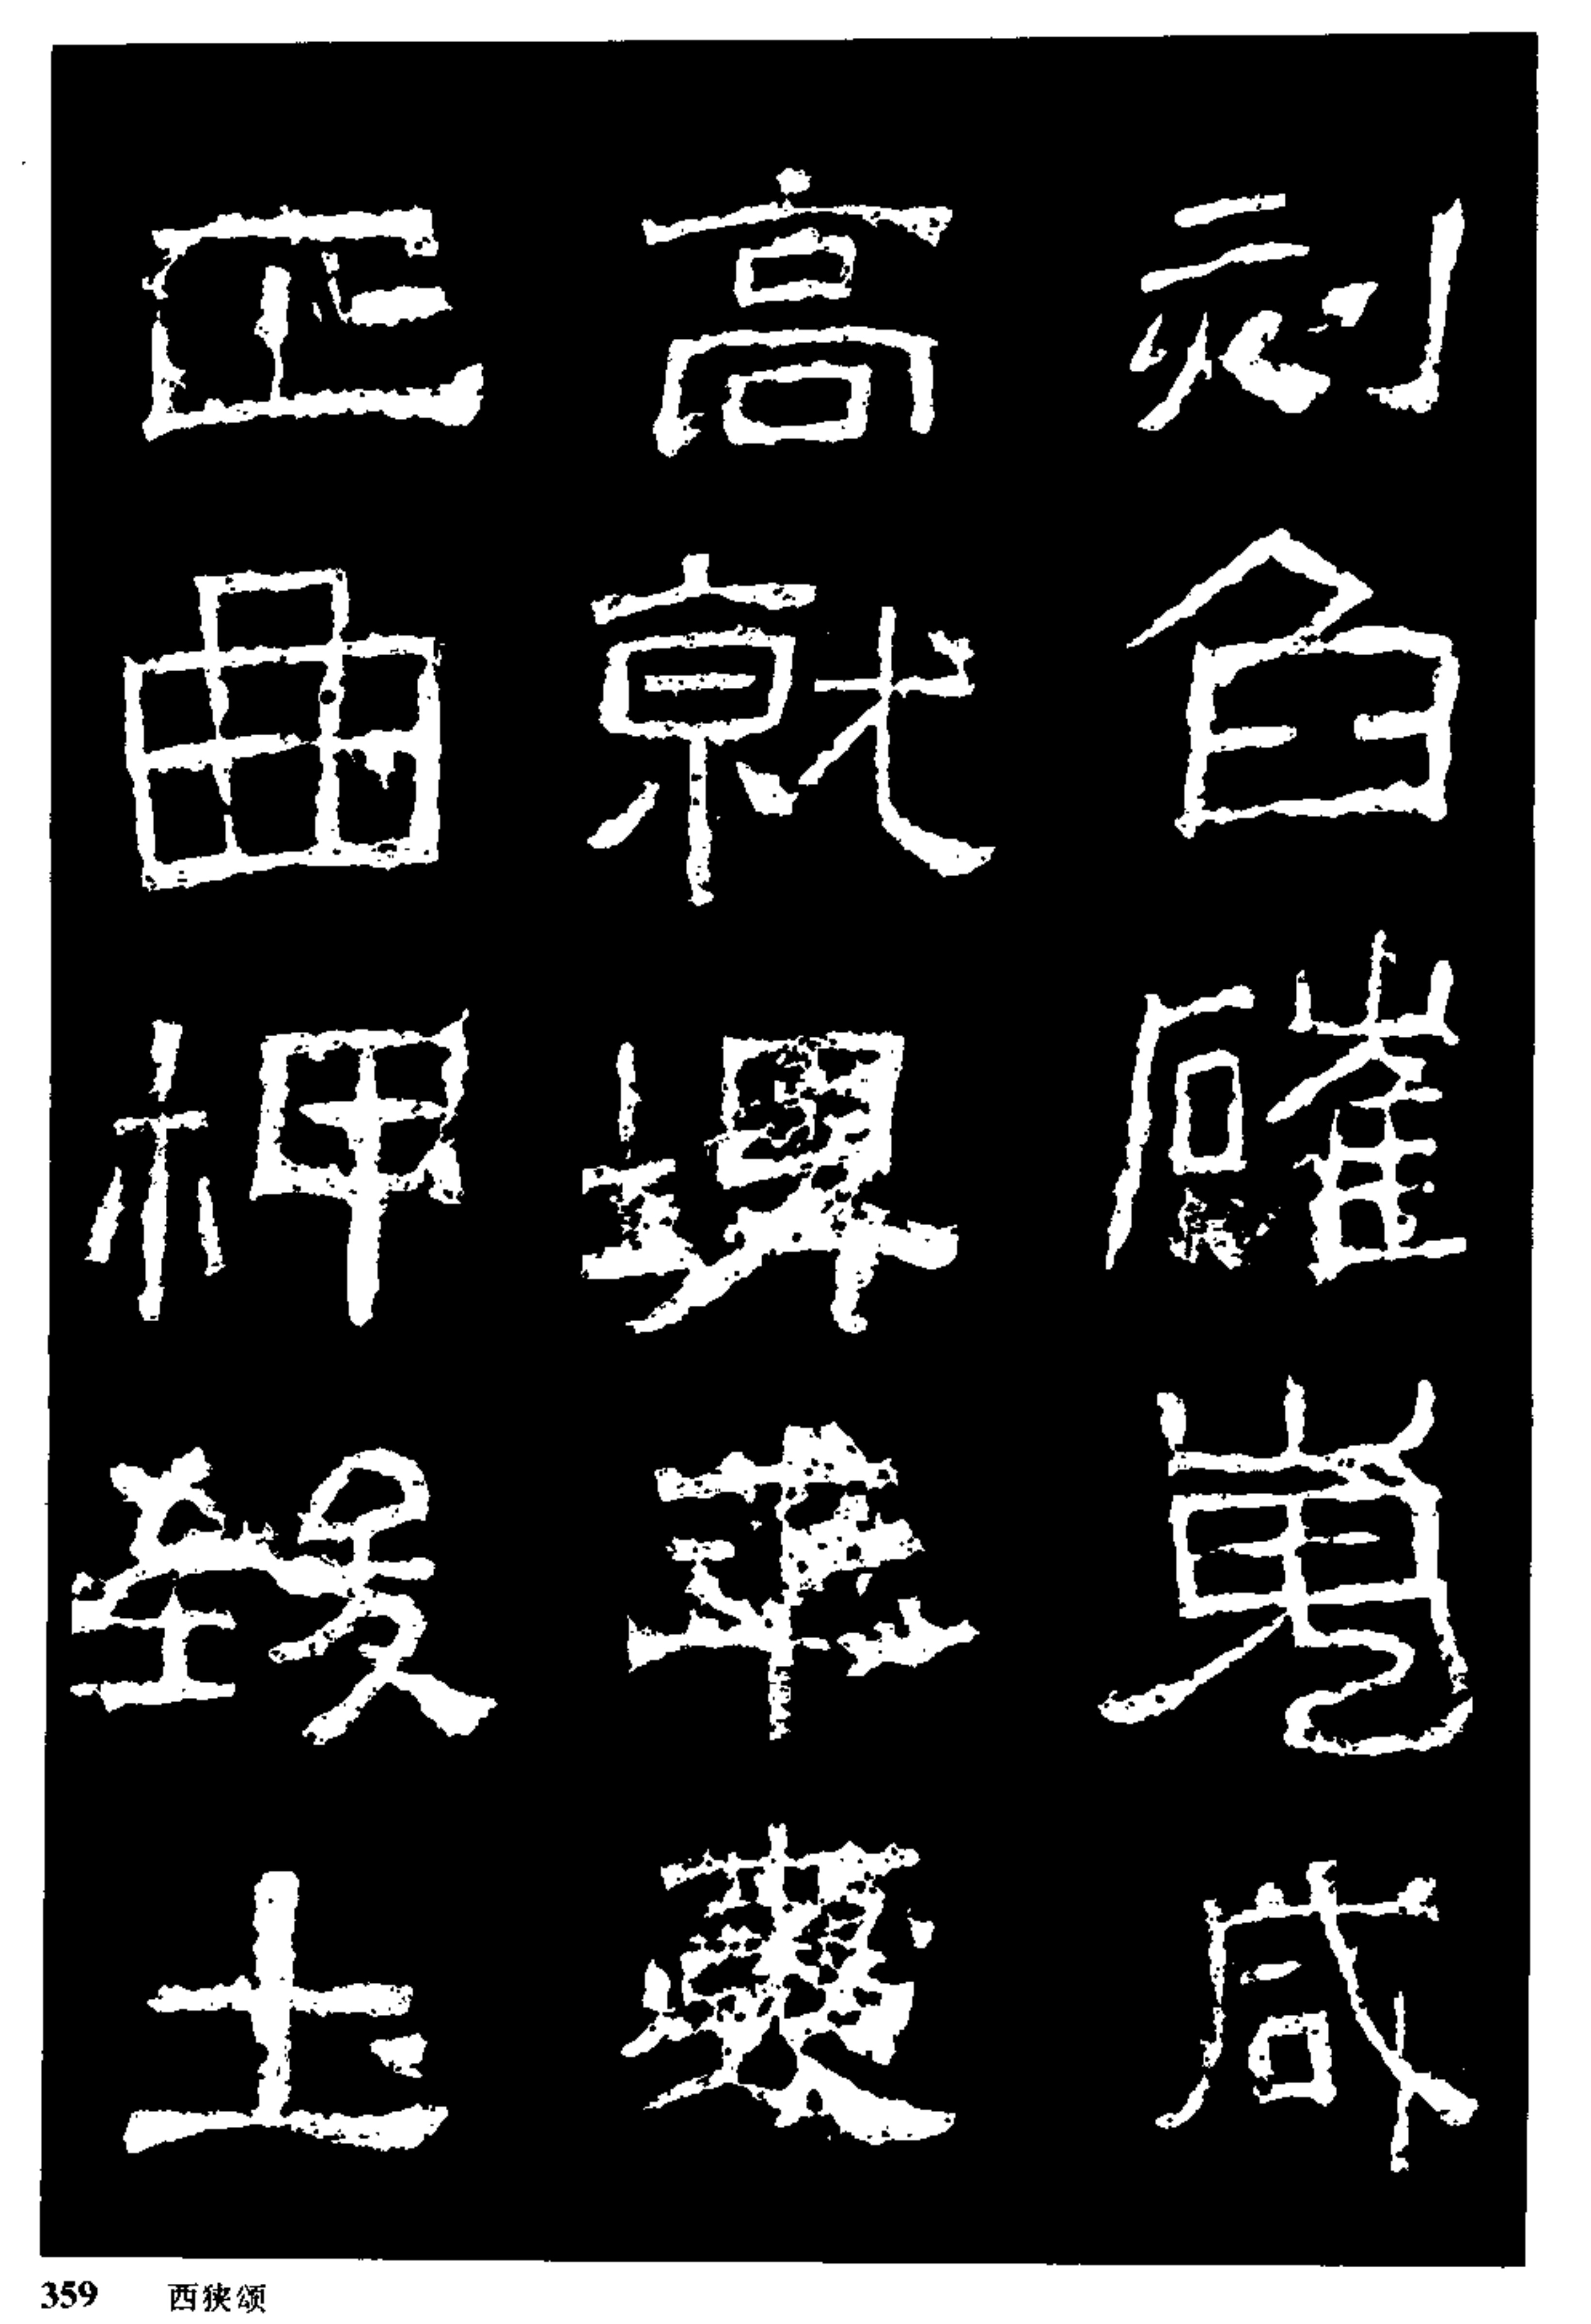 刻臽磪嵬咸
高就埤平夷
正曲柙致土
359 西狭颂